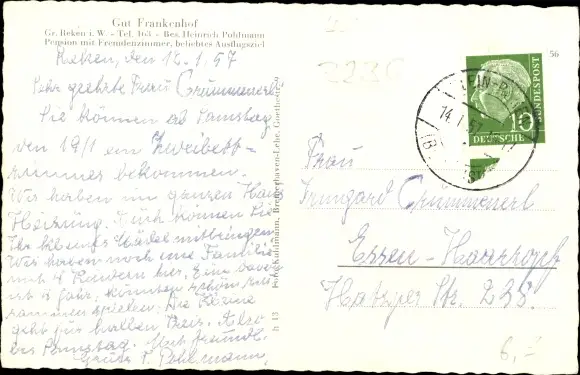 Gut Frankenhof
Gr. Reken i. W. - Tel. 163 - Bes. Heinrich Pohlmann
Pension mit Fremdenzimmer, beliebtes Ausflugsziel
Reken, den 12.1.57
Sehr geehrte Frau Crummenerl.
Sie können ab Samstag
den 19/1 ein Zweibett=
zimmer bekommen.
Wir haben im ganzen Haus
Heizung. Auch können Sie
Ihr kleines Mädel mitbringen
Wir haben noch eine Familie
mit 4 Kindern hier, Eine davon
ist 4 Jahr, können schön zu=
sammen spielen. Die Kleine
geht für halben Preis. Also
bis Samstag. Mit freundl.
Gruss F. Pohlmann.
Foto Kuhlmann, Bremerhaven-Lehe, Goethestr. 9
h 13
56
DEUTSCHE
BUNDESPOST
10
14.1.57
Frau
Irmgard Crummenerl
Essen-Haarzopf
Hatzper Str. 235.
6,-